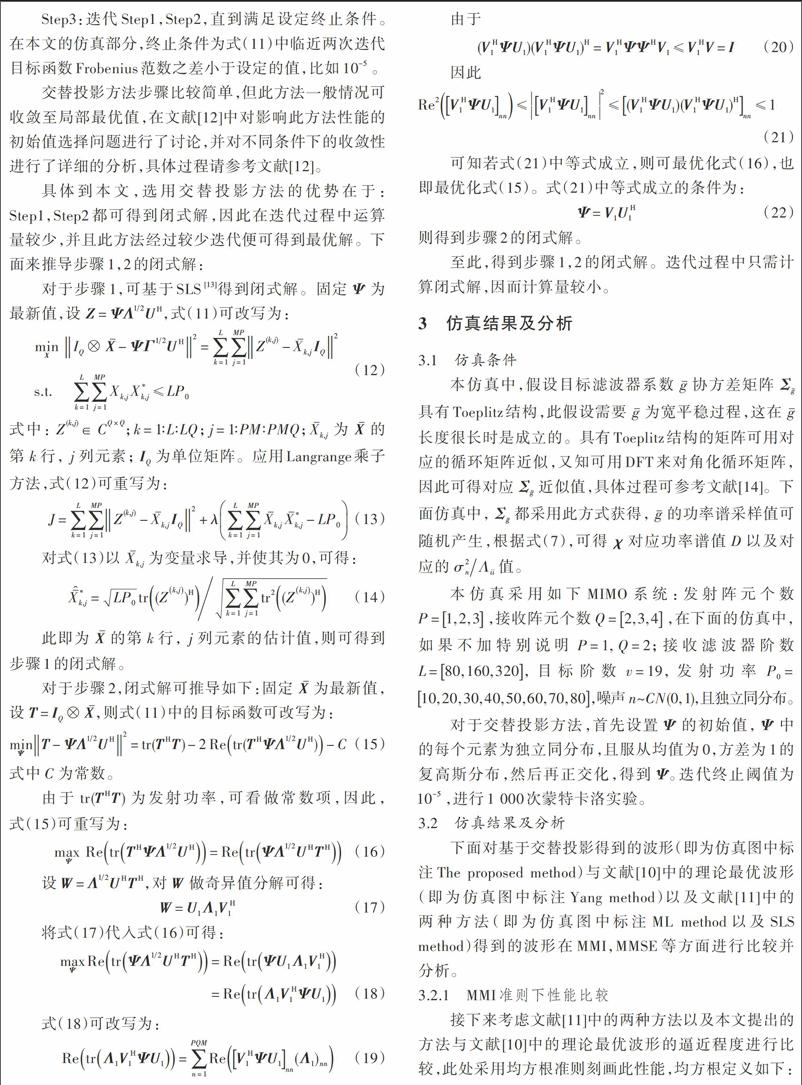 Step3：迭代Step1，Step2，直到满足设定终止条件。
在本文的仿真部分，终止条件为式（11）中临近两次迭代
目标函数Frobenius范数之差小于设定的值，比如10⁻⁵。
交替投影方法步骤比较简单，但此方法一般情况可
收敛至局部最优值，在文献[12]中对影响此方法性能的
初始值选择问题进行了讨论，并对不同条件下的收敛性
进行了详细的分析，具体过程请参考文献[12]。
具体到本文，选用交替投影方法的优势在于：
Step1，Step2都可得到闭式解，因此在迭代过程中运算
量较少，并且此方法经过较少迭代便可得到最优解。下
面来推导步骤1，2的闭式解：
对于步骤1，可基于SLS[13]得到闭式解。固定 Ψ 为
最新值，设 Z = ΨΛ^{1/2}U^H，式（11）可改写为：
min_X̄ ‖I_Q ⊗ X̄ − ΨΓ^{1/2}U^H‖² = ∑_{k=1}^{L} ∑_{j=1}^{MP} ‖Z^{(k,j)} − X̄_{k,j}I_Q‖²
s.t. ∑_{k=1}^{L} ∑_{j=1}^{MP} X_{k,j}X*_{k,j} ≤ LP_0 （12）
式中：Z^{(k,j)} ∈ C^{Q×Q}；k = 1∶L∶LQ；j = 1∶PM∶PMQ；X̄_{k,j} 为 X̄ 的
第 k 行，j 列元素；I_Q 为单位矩阵。应用Langrange乘子
方法，式（12）可重写为：
J = ∑_{k=1}^{L} ∑_{j=1}^{MP} ‖Z^{(k,j)} − X̄_{k,j}I_Q‖² + λ(∑_{k=1}^{L} ∑_{j=1}^{MP} X̄_{k,j}X̄*_{k,j} − LP_0) （13）
对式（13）以 X̄_{k,j} 为变量求导，并使其为0，可得：
X̄̂*_{k,j} = √(LP_0) tr((Z^{(k,j)})^H) / √(∑_{k=1}^{L} ∑_{j=1}^{MP} tr²((Z^{(k,j)})^H)) （14）
此即为 X̄ 的第 k 行，j 列元素的估计值，则可得到
步骤1的闭式解。
对于步骤2，闭式解可推导如下：固定 X̄ 为最新值，
设 T = I_Q ⊗ X̄，则式（11）中的目标函数可改写为：
min_Ψ ‖T − ΨΛ^{1/2}U^H‖² = tr(T^H T) − 2 Re(tr(T^H ΨΛ^{1/2}U^H)) − C （15）
式中 C 为常数。
由于 tr(T^H T) 为发射功率，可看做常数项，因此，
式（15）可重写为：
max_Ψ Re(tr(T^H ΨΛ^{1/2}U^H)) = Re(tr(ΨΛ^{1/2}U^H T^H)) （16）
设 W = Λ^{1/2}U^H T^H，对 W 做奇异值分解可得：
W = U_1Λ_1V_1^H （17）
将式（17）代入式（16）可得：
max_Ψ Re(tr(ΨΛ^{1/2}U^H T^H)) = Re(tr(ΨU_1Λ_1V_1^H))
= Re(tr(Λ_1V_1^H ΨU_1)) （18）
式（18）可改写为：
Re(tr(Λ_1V_1^H ΨU_1)) = ∑_{n=1}^{PQM} Re([V_1^H ΨU_1]_{nn}(Λ_1)_{nn}) （19）
由于
(V_1^H ΨU_1)(V_1^H ΨU_1)^H = V_1^H ΨΨ^H V_1 ≤ V_1^H V = I （20）
因此
Re²([V_1^H ΨU_1]_{nn}) ≤ |[V_1^H ΨU_1]_{nn}|² ≤ [(V_1^H ΨU_1)(V_1^H ΨU_1)^H]_{nn} ≤ 1
（21）
可知若式（21）中等式成立，则可最优化式（16），也
即最优化式（15）。式（21）中等式成立的条件为：
Ψ = V_1U_1^H （22）
则得到步骤2的闭式解。
至此，得到步骤1，2的闭式解。迭代过程中只需计
算闭式解，因而计算量较小。
3 仿真结果及分析
3.1 仿真条件
本仿真中，假设目标滤波器系数 ḡ 协方差矩阵 Σ_ḡ
具有Toeplitz结构，此假设需要 ḡ 为宽平稳过程，这在 ḡ
长度很长时是成立的。具有Toeplitz结构的矩阵可用对
应的循环矩阵近似，又知可用DFT来对角化循环矩阵，
因此可得对应 Σ_ḡ 近似值，具体过程可参考文献[14]。下
面仿真中，Σ_ḡ 都采用此方式获得，ḡ 的功率谱采样值可
随机产生，根据式（7），可得 χ 对应功率谱值 D 以及对
应的 σ_n²/Λ_ii 值。
本仿真采用如下MIMO系统：发射阵元个数
P = [1,2,3]，接收阵元个数 Q = [2,3,4]，在下面的仿真中，
如果不加特别说明 P = 1, Q = 2；接收滤波器阶数
L = [80,160,320]，目标阶数 v = 19，发射功率 P_0 =
[10,20,30,40,50,60,70,80]，噪声 n~CN(0,1)，且独立同分布。
对于交替投影方法，首先设置 Ψ 的初始值，Ψ 中
的每个元素为独立同分布，且服从均值为0，方差为1的
复高斯分布，然后再正交化，得到 Ψ。迭代终止阈值为
10⁻⁵，进行1 000次蒙特卡洛实验。
3.2 仿真结果及分析
下面对基于交替投影得到的波形（即为仿真图中标
注The proposed method）与文献[10]中的理论最优波形
（即为仿真图中标注Yang method）以及文献[11]中的
两种方法（即为仿真图中标注ML method以及SLS
method）得到的波形在MMI，MMSE等方面进行比较并
分析。
3.2.1 MMI准则下性能比较
接下来考虑文献[11]中的两种方法以及本文提出的
方法与文献[10]中的理论最优波形的逼近程度进行比
较，此处采用均方根准则刻画此性能，均方根定义如下：